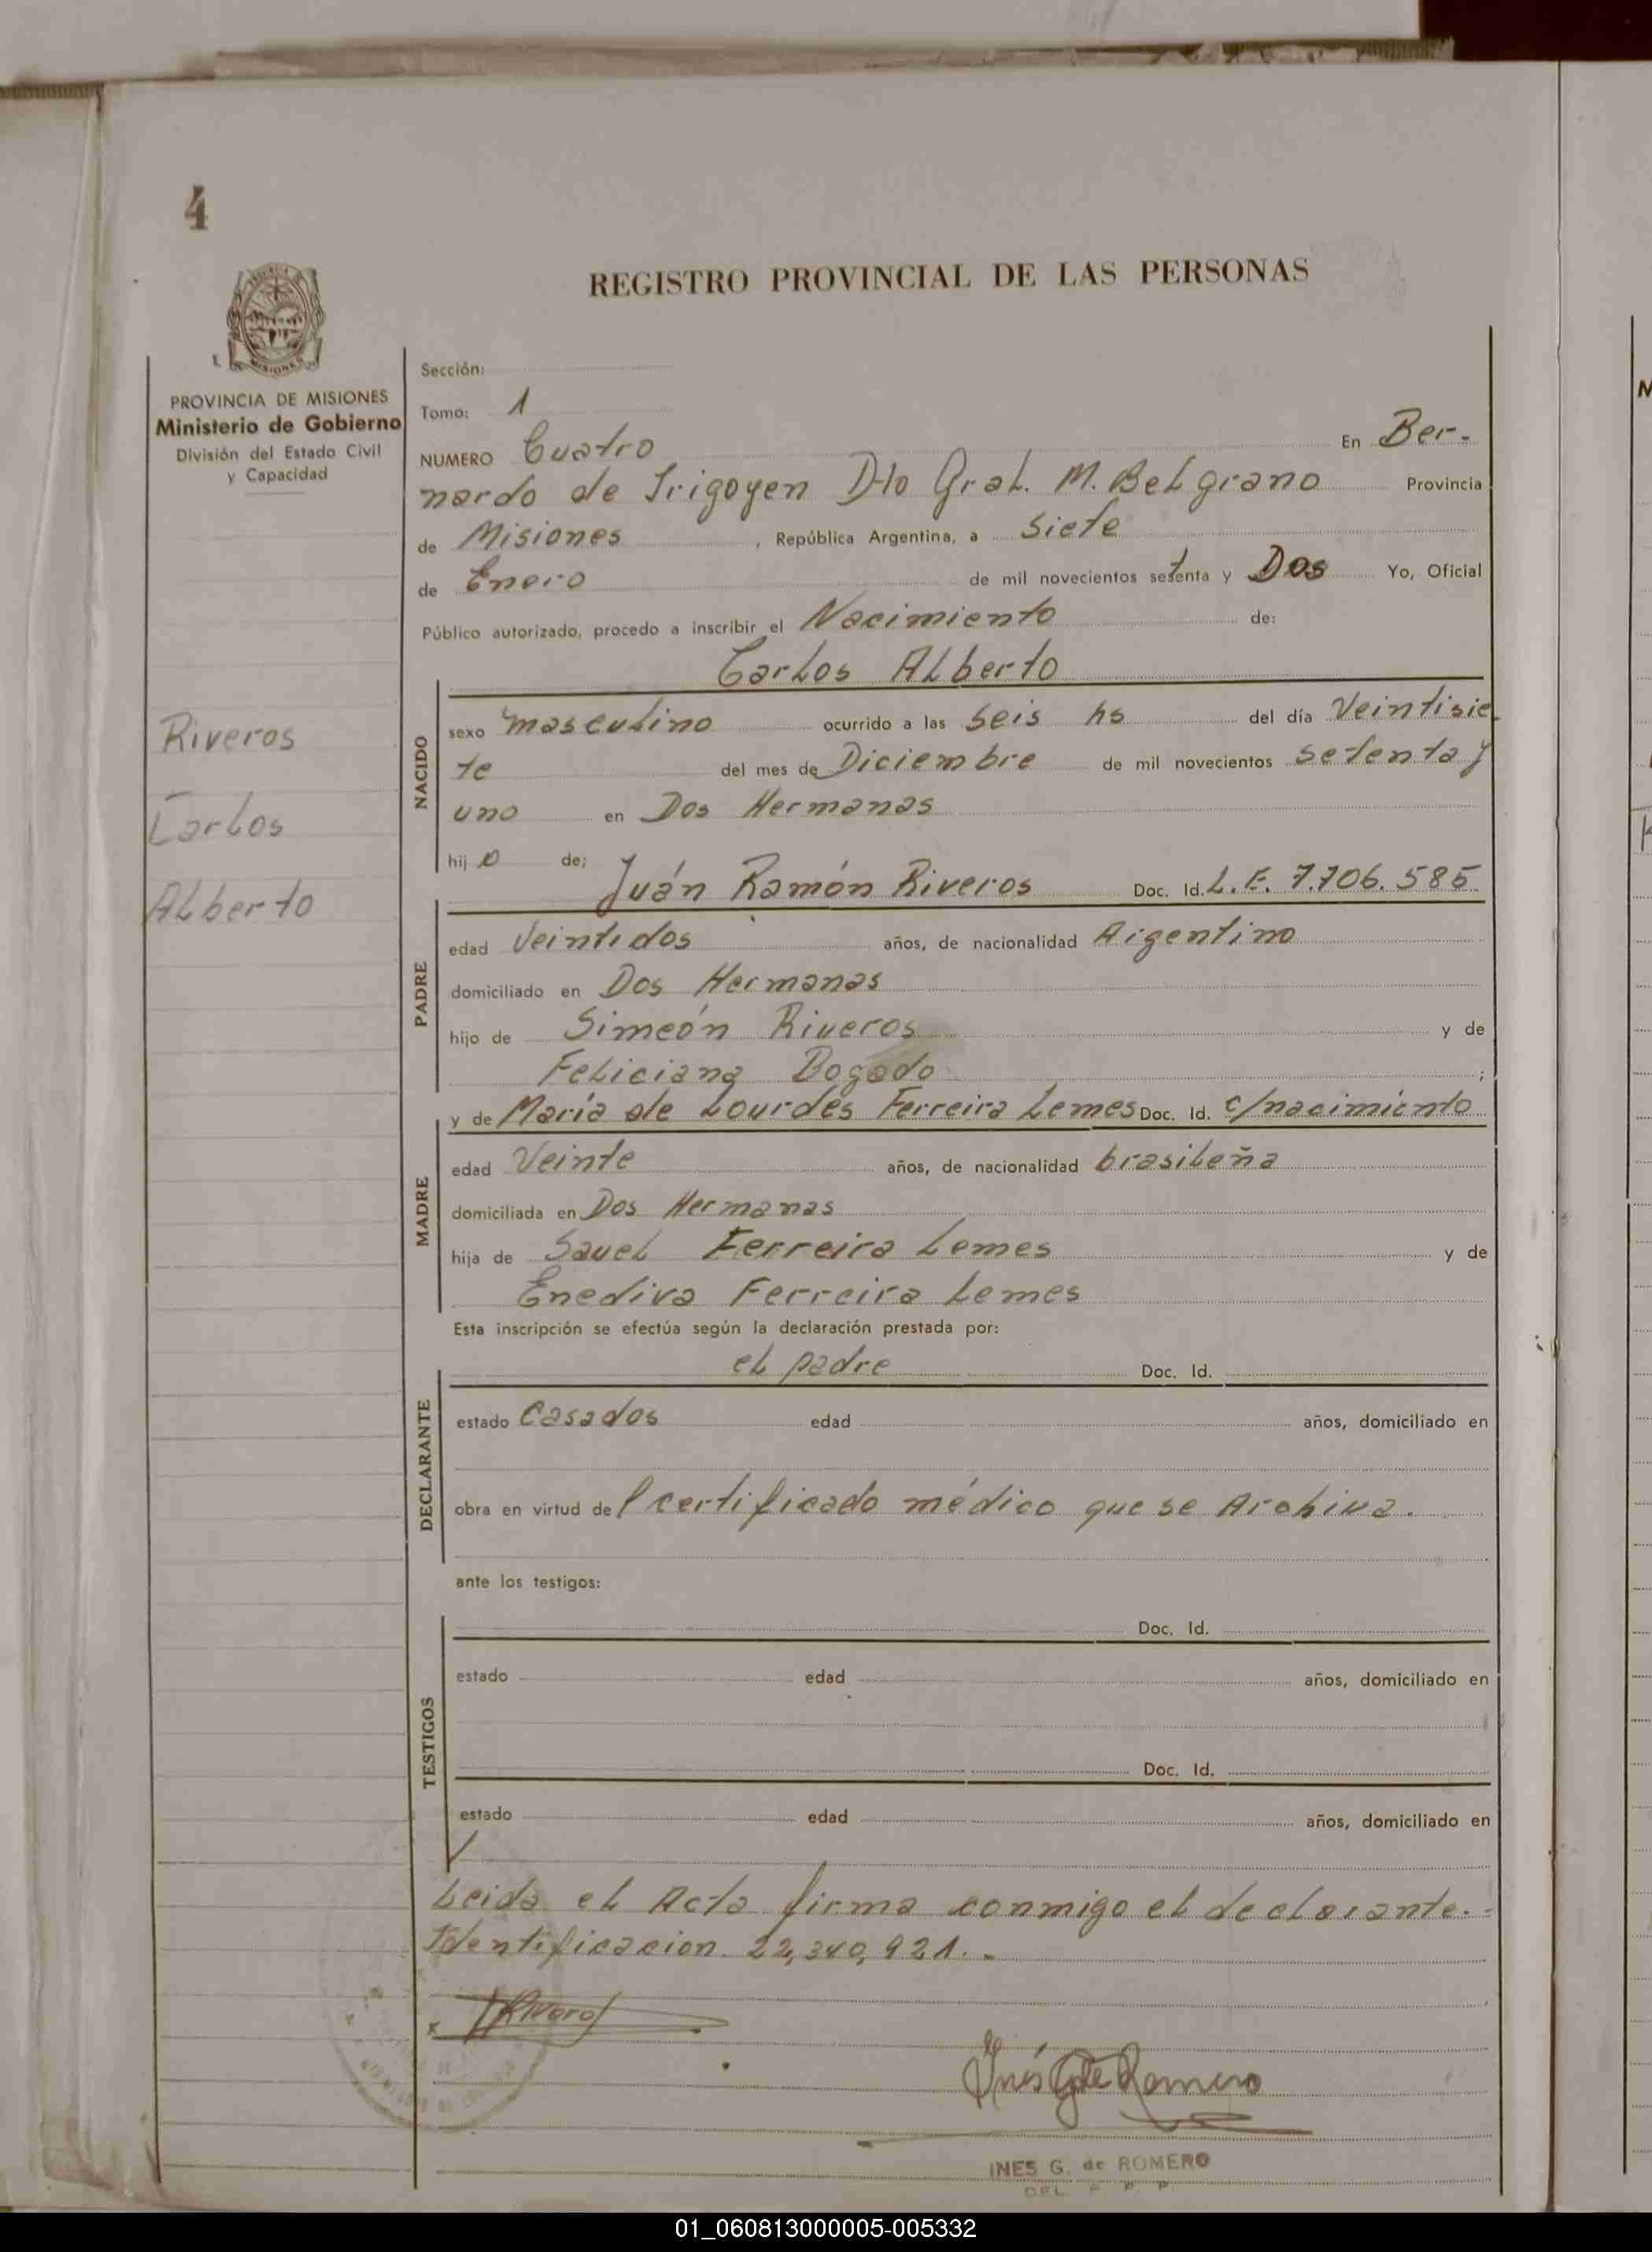 4
REGISTRO PROVINCIAL DE LAS PERSONAS
PROVINCIA DE MISIONES
Ministerio de Gobierno
División del Estado Civil
y Capacidad
Riveros
Carlos
Alberto
Sección:
Tomo: 1
NUMERO Cuatro En Ber-
nardo de Irigoyen Dto Gral. M. Belgrano Provincia
de Misiones, República Argentina, a Siete
de Enero de mil novecientos setenta y Dos Yo, Oficial
Público autorizado, procedo a inscribir el Nacimiento de:
Carlos Alberto
NACIDO
sexo masculino ocurrido a las seis hs del día Veintisie
te del mes de Diciembre de mil novecientos setenta y
uno en Dos Hermanas
hijo de; Juán Ramón Riveros Doc. Id. L.E. 7.706.585
PADRE
edad Veintidos años, de nacionalidad Argentino
domiciliado en Dos Hermanas
hijo de Simeón Riveros y de
Feliciana Bogado ;
y de María de Lourdes Ferreira Lemes Doc. Id. c/nacimiento
MADRE
edad Veinte años, de nacionalidad brasileña
domiciliada en Dos Hermanas
hija de Sauel Ferreira Lemes y de
Enediva Ferreira Lemes
Esta inscripción se efectúa según la declaración prestada por:
el padre Doc. Id.
DECLARANTE
estado Casados edad años, domiciliado en
obra en virtud del certificado médico que se Archiva.
ante los testigos:
Doc. Id.
TESTIGOS
estado edad años, domiciliado en
Doc. Id.
estado edad años, domiciliado en
Leida el Acta firma conmigo el declarante.-
Identificacion 22,340,921.-
x
Inés G de Romero
INES G. de ROMERO
01_060813000005-005332